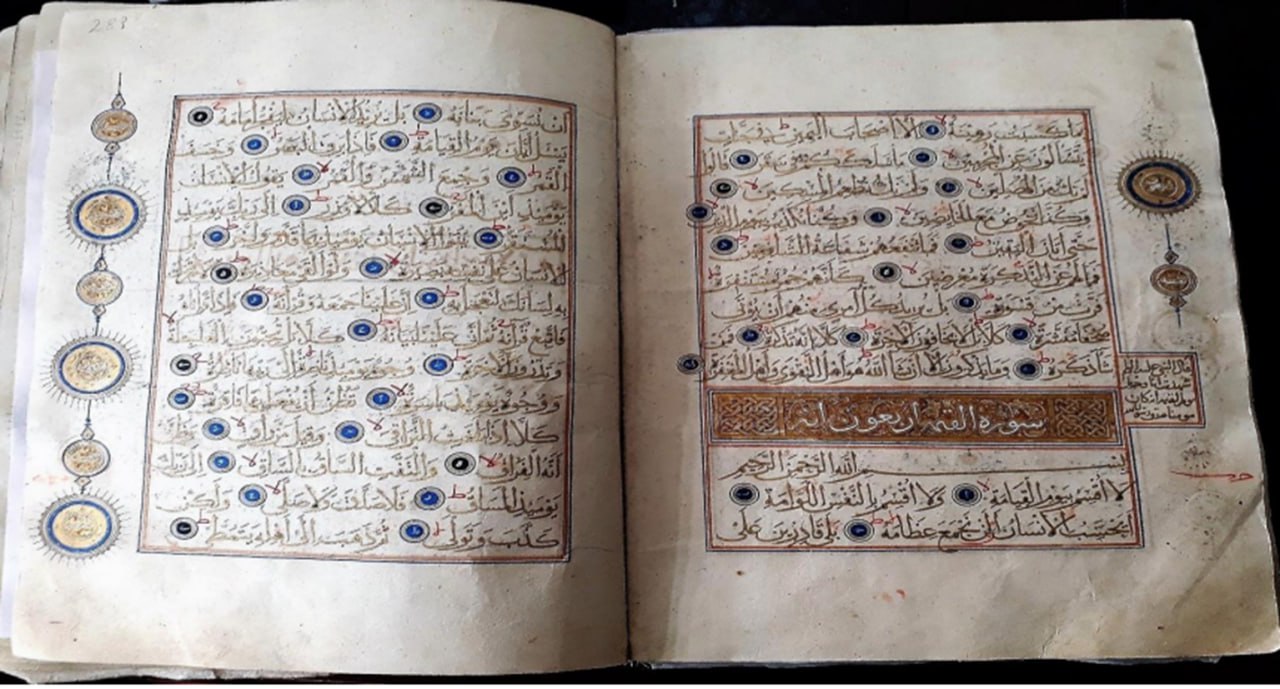 ما كسبت رهينة الا اصحاب اليمين في جنات
يتساءلون عن المجرمين ما سلككم في سقر قالوا
لم نك من المصلين ولم نك نطعم المسكين
وكنا نخوض مع الخائضين وكنا نكذب بيوم الدين
حتى اتانا اليقين فما تنفعهم شفاعة الشافعين
فما لهم عن التذكرة معرضين كانهم حمر مستنفرة
فرت من قسورة بل يريد كل امرئ منهم ان يؤتى
صحفا منشرة كلا بل لا يخافون الاخرة كلا انه تذكرة فمن
شاء ذكره وما يذكرون الا ان يشاء الله هو اهل التقوى واهل المغفرة
سورة القيمة اربعون اية
بسم الله الرحمن الرحيم
لا اقسم بيوم القيامة ولا اقسم بالنفس اللوامة
ايحسب الانسان الن نجمع عظامه بلى قادرين على
283
ان نسوي بنانه بل يريد الانسان ليفجر امامه
يسئل ايان يوم القيامة فاذا برق البصر وخسف
القمر وجمع الشمس والقمر يقول الانسان
يومئذ اين المفر كلا لا وزر الى ربك يومئذ
المستقر ينبؤ الانسان يومئذ بما قدم واخر بل
الانسان على نفسه بصيرة ولو القى معاذيره لا تحرك
به لسانك لتعجل به ان علينا جمعه وقرانه فاذا قراناه
فاتبع قرانه ثم ان علينا بيانه كلا بل تحبون العاجلة
وتذرون الاخرة وجوه يومئذ ناضرة الى ربها ناظرة
ووجوه يومئذ باسرة تظن ان يفعل بها فاقرة
كلا اذا بلغت التراقي وقيل من راق وظن
انه الفراق والتفت الساق بالساق الى ربك
يومئذ المساق فلا صدق ولا صلى ولكن
كذب وتولى ثم ذهب الى اهله يتمطى